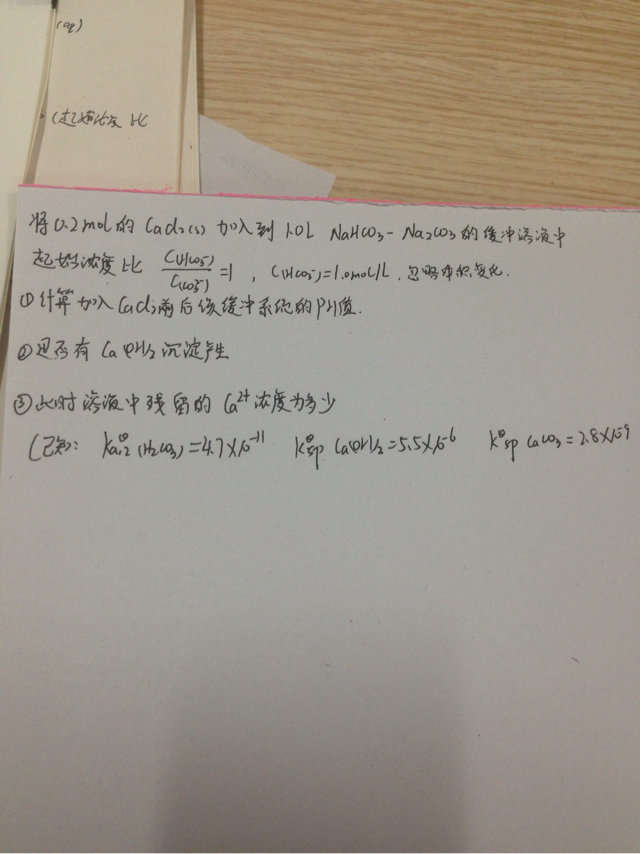 (aq)
(起始浓度比
将0.2mol的CaCl₂(s)加入到1.0L NaHCO₃-Na₂CO₃的缓冲溶液中
起始浓度比 C(HCO₃⁻)/C(CO₃²⁻)=1, C(HCO₃⁻)=1.0mol/L.忽略体积变化.
①计算加入CaCl₂前后该缓冲系统的PH值.
②是否有Ca(OH)₂沉淀产生
③此时溶液中残留的Ca²⁺浓度为多少
(已知: Kθa₂(H₂CO₃)=4.7×10⁻¹¹ Kθsp Ca(OH)₂=5.5×10⁻⁶ Kθsp CaCO₃=2.8×10⁻⁹